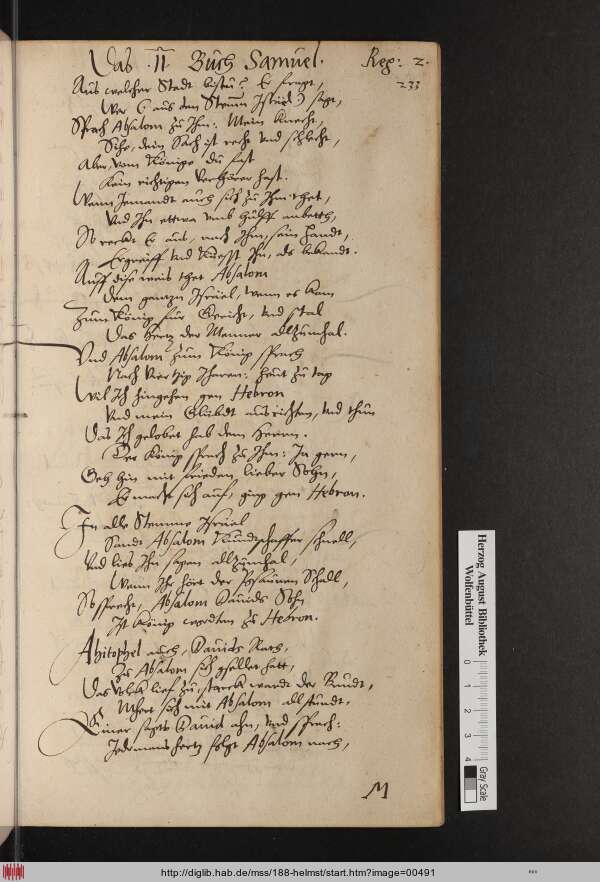 Das .II. Buch Samuel. Reg: 2.
233
Aus welcher Stadt bistu? Er fragt,
Wer Er aus den Stemm Israel) sagt,
Sprach Absalom zu Ihm: Mein knecht,
Sihe, dein Sach ist recht Vnd schlecht,
Aber, vom Könige du hast
Kein richtigen Verhörer hast.
Wann Jemandt auch sich zu Ihm thet,
Vnd Ihn ettwa vmb hülff anbetth,
So reckt Er aus, nach Ihm, sein Handt,
Ergreiff Vnd Küest Ihn, als bekandt.
Auff dise weis thet Absalom
Dem gantzn Israel, wenn es kam
Zum König für Gericht, Vnd stal
Das Hertz der Menner allzumhal.
Vnd Absalom zum König sprach
Nach Viertzig Iharen: heut zu tag
Wil Ich hingehen gen Hebron
Vnd mein Glübdt ausrichten, Vnd thun
Das Ich gelobet hab dem Herrn.
Der König sprach zu Ihm: Ja gern,
Geh hin mit frieden lieber Sohn,
Er macht sich auf, ging gen Hebron.
In alle Stemme Israel
Sandt Absalom Kundtschaffer schnell,
Vnd lies Ihn sagen allzumhal,
Wenn Ihr hört der Posaunen Schall,
So sprecht, Absalom Dauids Sohn
Ist König worden zu Hebron.
Ahitophel auch, Dauids Rath,
Zu Absalom sich gsellet hatt,
Das Volck lief zu, starck wardt der Bundt,
Mhert sich mit Absalom all stundt.
Einer sagts Dauid ahn, Vnd sprach:
Jedermans hertz folgt Absalom nach,
M
Herzog August Bibliothek
Wolfenbüttel
0 1 2 3 4
Gray Scale
http://diglib.hab.de/mss/188-helmst/start.htm?image=00491